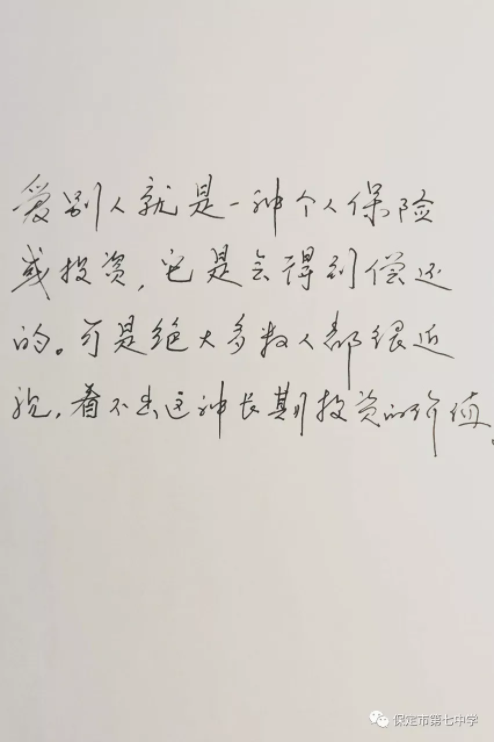 爱别人就是一种个人保险
或投资，它是会得到偿还
的。可是绝大多数人都很近
视，看不出这种长期投资的价值。
保定市第七中学